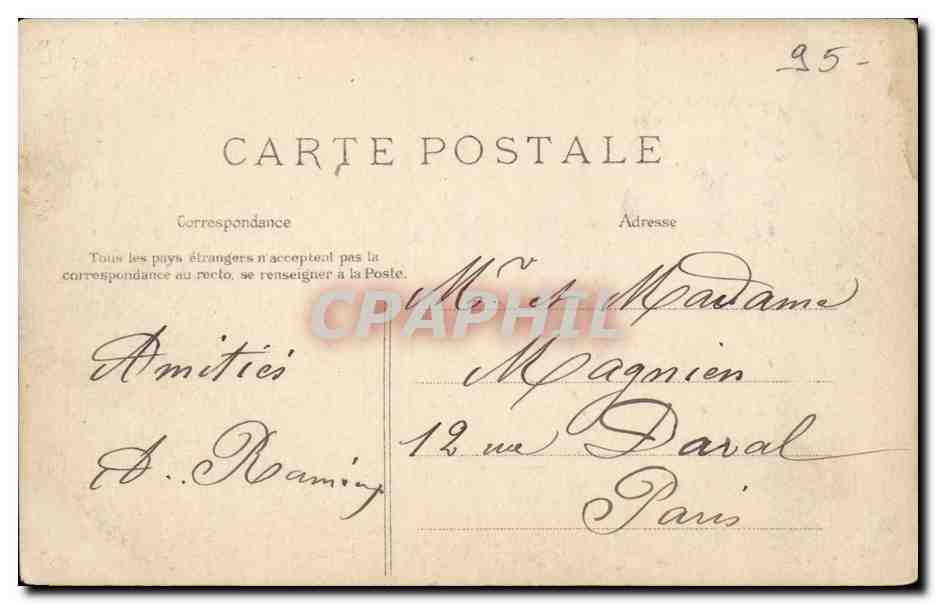 95-
CARTE POSTALE
Correspondance
Adresse
Tous les pays étrangers n'acceptent pas la
correspondance au recto, se renseigner à la Poste.
CPAPHIL
Amitiés
A..
Mr et Madame
Magnien
12 rue Daval
Paris